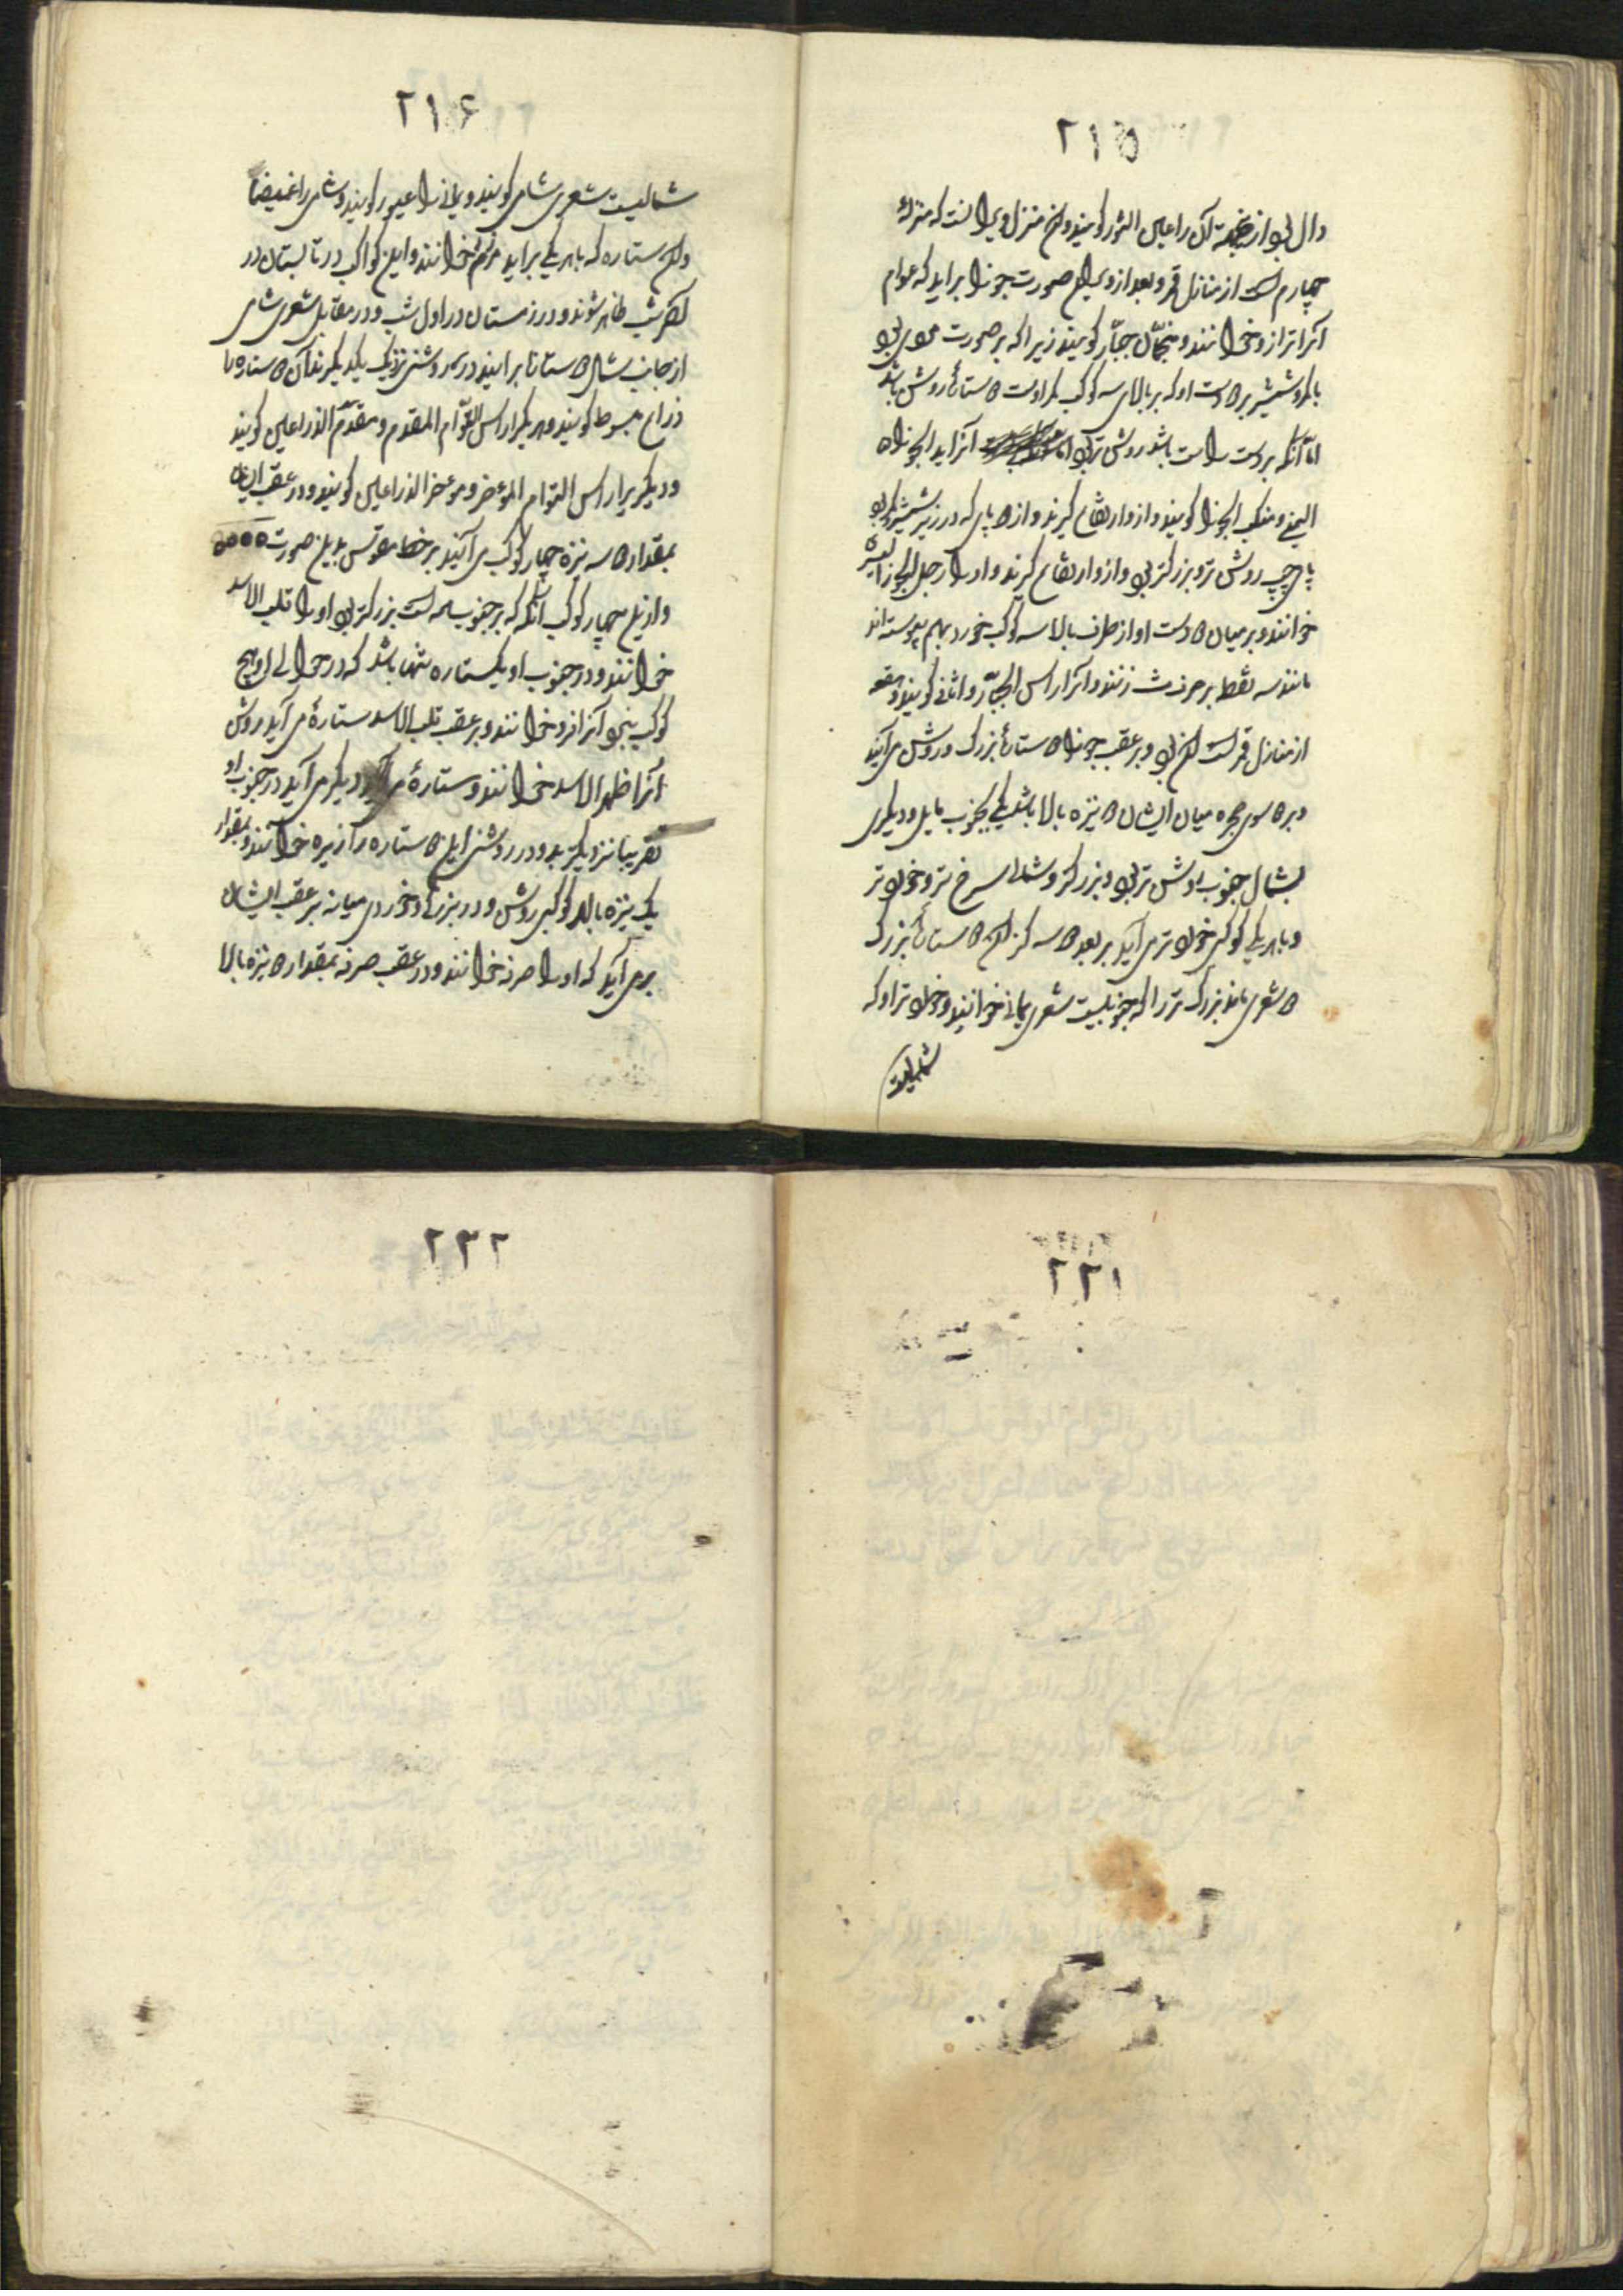 ۲۱۵
دال بود از جهت آن را عین الثور گویند و این منزل دبران است که منزلهٔ
چهارم است از منازل قمر و بعد از وی این صورت جوزا براید که عوام
آنرا ترازو خوانند و منجمان جبّار گویند زیرا که بر صورت مردی بود
با کمر و شمشیر بر دست او که بر بالای سه کوکب کمر اوست دو ستاره روشن باشد
امّا آنکه بر دست راست باشد روشن تر بود آنرا ید الجوزاء
الیمنی و منکب الجوزا گویند و ازو ارتفاع گیرند و از دو پای که در زیر شمشیر و کمر بود
پای چپ روشن تر و بزرگتر بود و ازو ارتفاع گیرند و او را رجل الجوزا الیسری
خوانند و بر میان دو دست او از طرف بالا سه کوکب خورد بهم پیوسته اند
مانند سه نقطه بر حرف ث زنند و آنرا راس الجبّار و اثافی گویند و هقعه
از منازل قمر است این بود و بر عقب جوزا دو ستاره بزرگ و روشن می آیند
و بر دو سوی مجره میان ایشان دو نیزه بالا باشد یکی بجنوب مایل و دیگری
بشمال جنوبی روشن تر بود و بزرگتر و شمالی سرخ تر و خورد تر
و با هر یکی کوکبی خورد تر می آید بر بعد دو سه گز این دو ستاره بزرگ
دو شعری باشد بزرگ تر را که جنوبیست شعری یمانی خوانند و خورد تر او که
شمالیست
۲۱۶
شمالیست شعری شامی گویند و یمانی را عبور گویند و شامی را غمیضا
و این ستاره که با هر یکی براید مرزم خوانند و این کواکب در تابستان در
آخر شب ظاهر شوند و در زمستان در اول شب و در مقابل شعری شامی
از جانب شمال دو ستاره برایند در روشنی نزدیک یکدیگرند آن دو ستاره را
ذراع مبسوط گویند و هر یکی را راس التوأم المقدم و مقدّم الذراعین گویند
و دیگر را راس التوام المؤخر و مؤخر الذراعین گویند و در عقب ایشان
بمقدار دو سه نیزه چهار کوکب می آیند بر خط مقوس بدین صورت ٥٥٥٥
و ازین چهار کوکب آنکه که بر جنوب است بزرگتر بود او را قلب الاسد
خوانند و در جنوب او یک ستاره تنها باشد که در حوالی او هیچ
کوکب نبود آنرا فرد خوانند و بر عقب قلب الاسد ستارهٔ می آید روشن
آنرا ظهر الاسد خوانند و ستارهٔ دیگر می آید در جنوب او
تقریبا نزدیک بدو در روشنی این دو ستاره را زبره خوانند و بمقدار
یک نیزه بالا کوکبی روشن و در بزرگی و خوردی میانه بر عقب ایشان
بر می آید که او را صرفه خوانند و در عقب صرفه بمقدار دو نیزه بالا
۲۲۱
۲۳۲